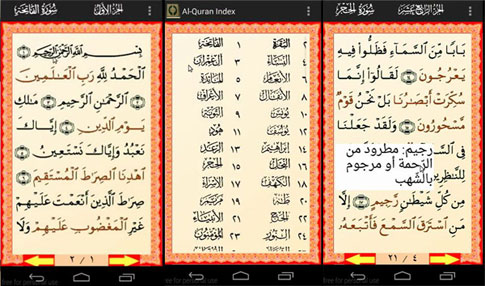 سُورَةُ الفَاتِحَة الجُزءُ الأَوَّل
بِسْمِ اللَّهِ الرَّحْمَٰنِ الرَّحِيمِ
الْحَمْدُ لِلَّهِ رَبِّ الْعَالَمِينَ
الرَّحْمَٰنِ الرَّحِيمِ مَالِكِ
يَوْمِ الدِّينِ إِيَّاكَ
نَعْبُدُ وَإِيَّاكَ نَسْتَعِينُ
اهْدِنَا الصِّرَاطَ الْمُسْتَقِيمَ
صِرَاطَ الَّذِينَ أَنْعَمْتَ عَلَيْهِمْ
غَيْرِ الْمَغْضُوبِ عَلَيْهِمْ وَلَا
٢ / ١
free for personal use
Al-Quran Index
٢ البَقَرَة الفَاتِحَة ١
٤ النِّسَاء آل عِمْرَان ٣
٦ الأَنْعَام المَائِدَة ٥
٨ الأَنْفَال الأَعْرَاف ٧
١٠ يُونُس التَّوْبَة ٩
١٢ يُوسُف هُود ١١
١٤ إِبْرَاهِيم الرَّعْد ١٣
١٦ النَّحْل الحِجْر ١٥
١٨ الكَهْف الإِسْرَاء ١٧
٢٠ طه مَرْيَم ١٩
٢٢ الحَجّ الأَنْبِيَاء ٢١
٢٤ النُّور المُؤْمِنُون ٢٣
free for personal use
سُورَةُ الحِجْر الجُزءُ الرَّابِعَ عَشَرَ
بَابًا مِّنَ السَّمَاءِ فَظَلُّوا فِيهِ
يَعْرُجُونَ لَقَالُوا إِنَّمَا
سُكِّرَتْ أَبْصَارُنَا بَلْ نَحْنُ قَوْمٌ
مَّسْحُورُونَ وَلَقَدْ جَعَلْنَا
فِي السَّ
رَجِيمٍ: مطرودٍ من
الرَّحمة أو مرجوم
بالشُّهب
لِلنَّاظِرِينَ
مِن كُلِّ شَيْطَانٍ رَّجِيمٍ إِلَّا
مَنِ اسْتَرَقَ السَّمْعَ فَأَتْبَعَهُ
٢١ / ٤
free for personal use